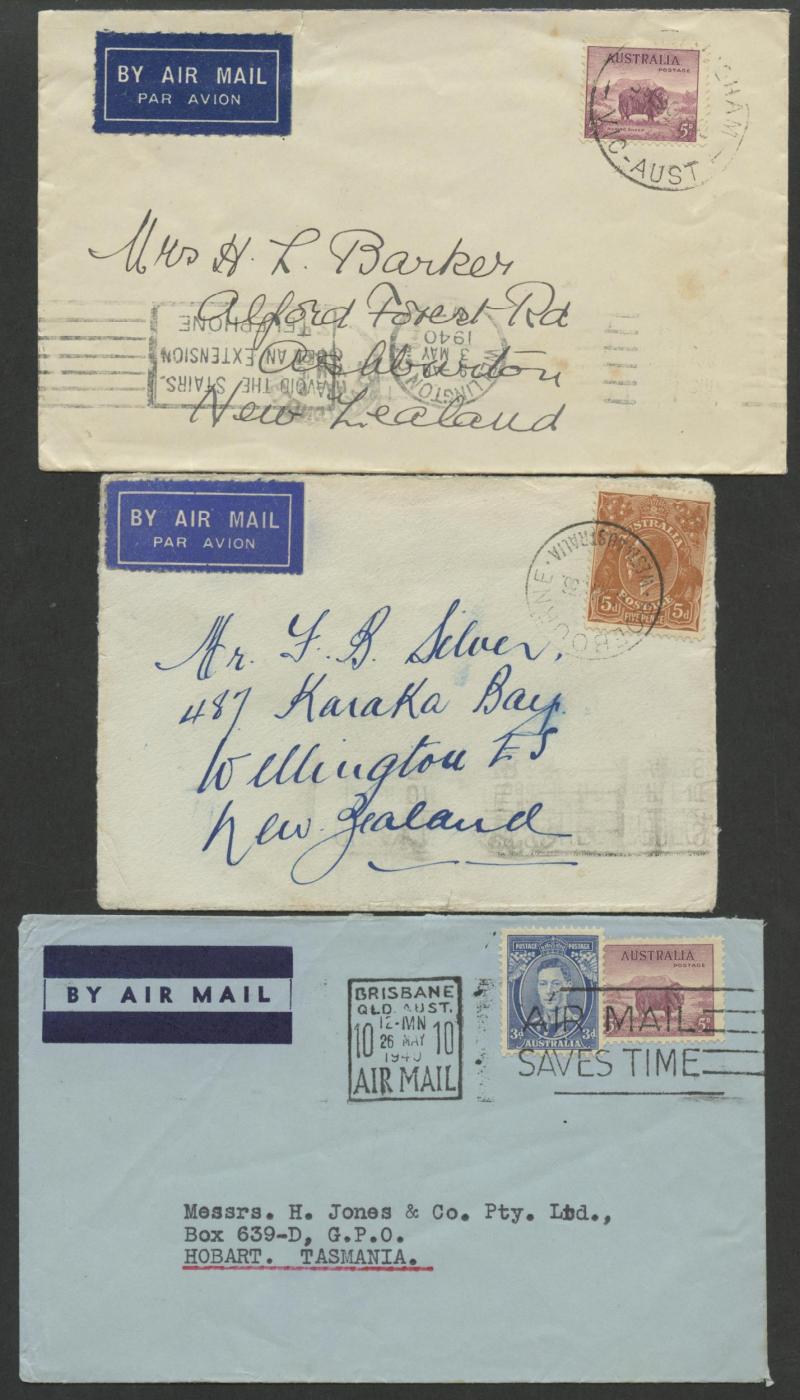 BY AIR MAIL
PAR AVION
AUSTRALIA
POSTAGE
5D
VIC-AUST
Mrs H. L. Barker
Alford Forest Rd
Ashburton
New Zealand
AVOID THE STAIRS.
AN EXTENSION
TELEPHONE
3 MAY
1940
BY AIR MAIL
PAR AVION
AUSTRALIA
POSTAGE
5d 5d
FIVE PENCE
AUSTRALIA
Mr. F. B. Silver,
487 Karaka Bay
Wellington E5
New Zealand
BY AIR MAIL
BRISBANE
QLD. AUST.
12-MN
10 26 MAY 10
1940
AIR MAIL
POSTAGE POSTAGE
3d 3d
AUSTRALIA
AUSTRALIA
POSTAGE
5D
AIR MAIL
SAVES TIME
Messrs. H. Jones & Co. Pty. Ltd.,
Box 639-D, G.P.O.
HOBART. TASMANIA.